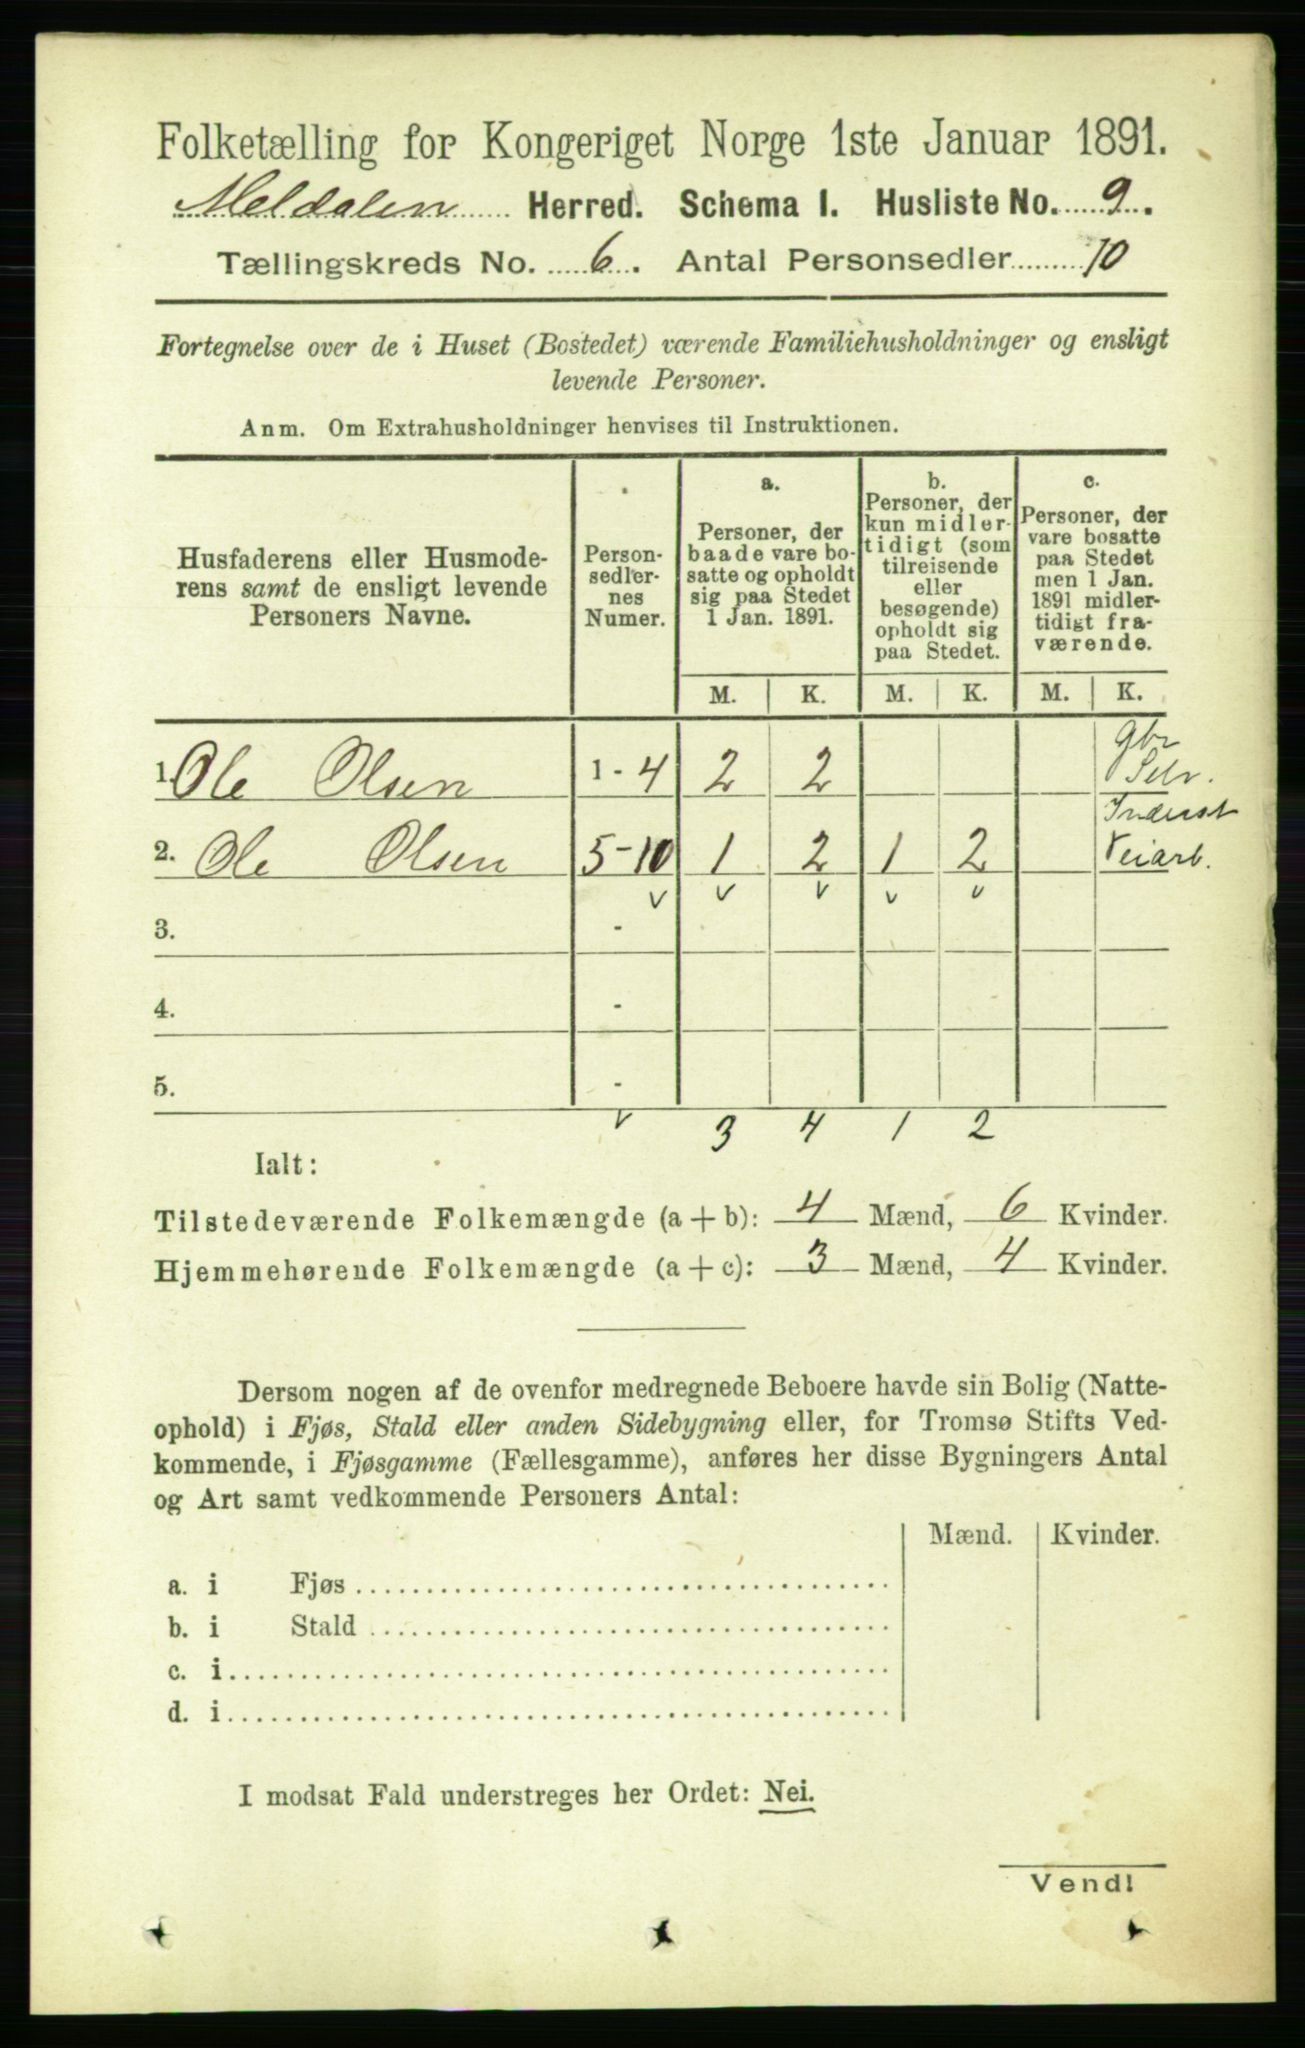 Folketælling for Kongeriget Norge 1ste Januar 1891.
Meldalen Herred. Schema 1. Husliste No. 9.
Tællingskreds No. 6. Antal Personsedler 10
Fortegnelse over de i Huset (Bostedet) værende Familiehusholdninger og ensligt
levende Personer.
Anm. Om Extrahusholdninger henvises til Instruktionen.
Husfaderens eller Husmode-
rens samt de ensligt levende
Personers Navne.
Person-
sedler-
nes
Numer.
a.
Personer, der
baade vare bo-
satte og opholdt
sig paa Stedet
1 Jan. 1891.
b.
Personer, der
kun midler-
tidigt (som
tilreisende
eller
besøgende)
opholdt sig
paa Stedet.
c.
Personer, der
vare bosatte
paa Stedet
men 1 Jan.
1891 midler-
tidigt fra-
værende.
M. K. M. K. M. K.
1. Ole Olsen 1-4 2 2 Gbr Selv.
2. Ole Olsen 5-10 1 2 1 2 Inderst Veiarb.
v v v v v
3. -
4. -
5. -
v 3 4 1 2
Ialt:
Tilstedeværende Folkemængde (a + b): 4 Mænd, 6 Kvinder.
Hjemmehørende Folkemængde (a + c): 3 Mænd, 4 Kvinder.
Dersom nogen af de ovenfor medregnede Beboere havde sin Bolig (Natte-
ophold) i Fjøs, Stald eller anden Sidebygning eller, for Tromsø Stifts Ved-
kommende, i Fjøsgamme (Fællesgamme), anføres her disse Bygningers Antal
og Art samt vedkommende Personers Antal:
Mænd. Kvinder.
a. i Fjøs
b. i Stald
c. i
d. i
I modsat Fald understreges her Ordet: Nei.
Vend!